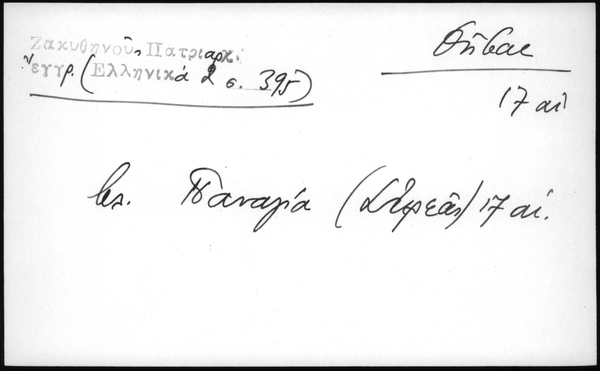 Ζακυθηνοῦ, Πατριαρχ.
ἔγγρ. (Ἑλληνικά 2 σ. 395)
Θῆβαι
17 αἰ
βλ. Παναγία 17 αἰ.